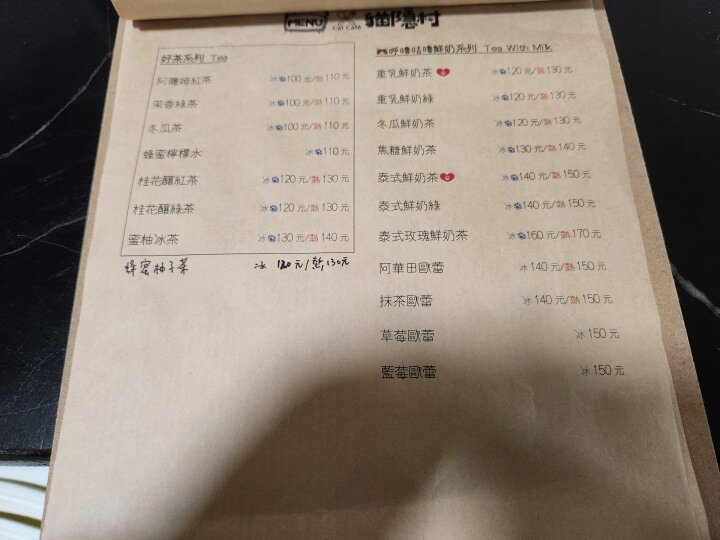 MENU Cat Café 貓隱村
好茶系列 Tea
阿薩姆紅茶 冰100元/熱110元
茉香綠茶 冰100元/熱110元
冬瓜茶 冰100元/熱110元
蜂蜜檸檬水 冰110元
桂花釀紅茶 冰120元/熱130元
桂花釀綠茶 冰120元/熱130元
蜜柚冰茶 冰130元/熱140元
蜂蜜柚子茶 冰 120元/熱130元
呼嚕咕嚕鮮奶系列 Tea With Milk
重乳鮮奶茶 冰120元/熱130元
重乳鮮奶綠 冰120元/熱130元
冬瓜鮮奶茶 冰120元/熱130元
焦糖鮮奶茶 冰130元/熱140元
泰式鮮奶茶 冰140元/熱150元
泰式鮮奶綠 冰140元/熱150元
泰式玫瑰鮮奶茶 冰160元/熱170元
阿華田歐蕾 冰140元/熱150元
抹茶歐蕾 冰140元/熱150元
草莓歐蕾 冰150元
藍莓歐蕾 冰150元